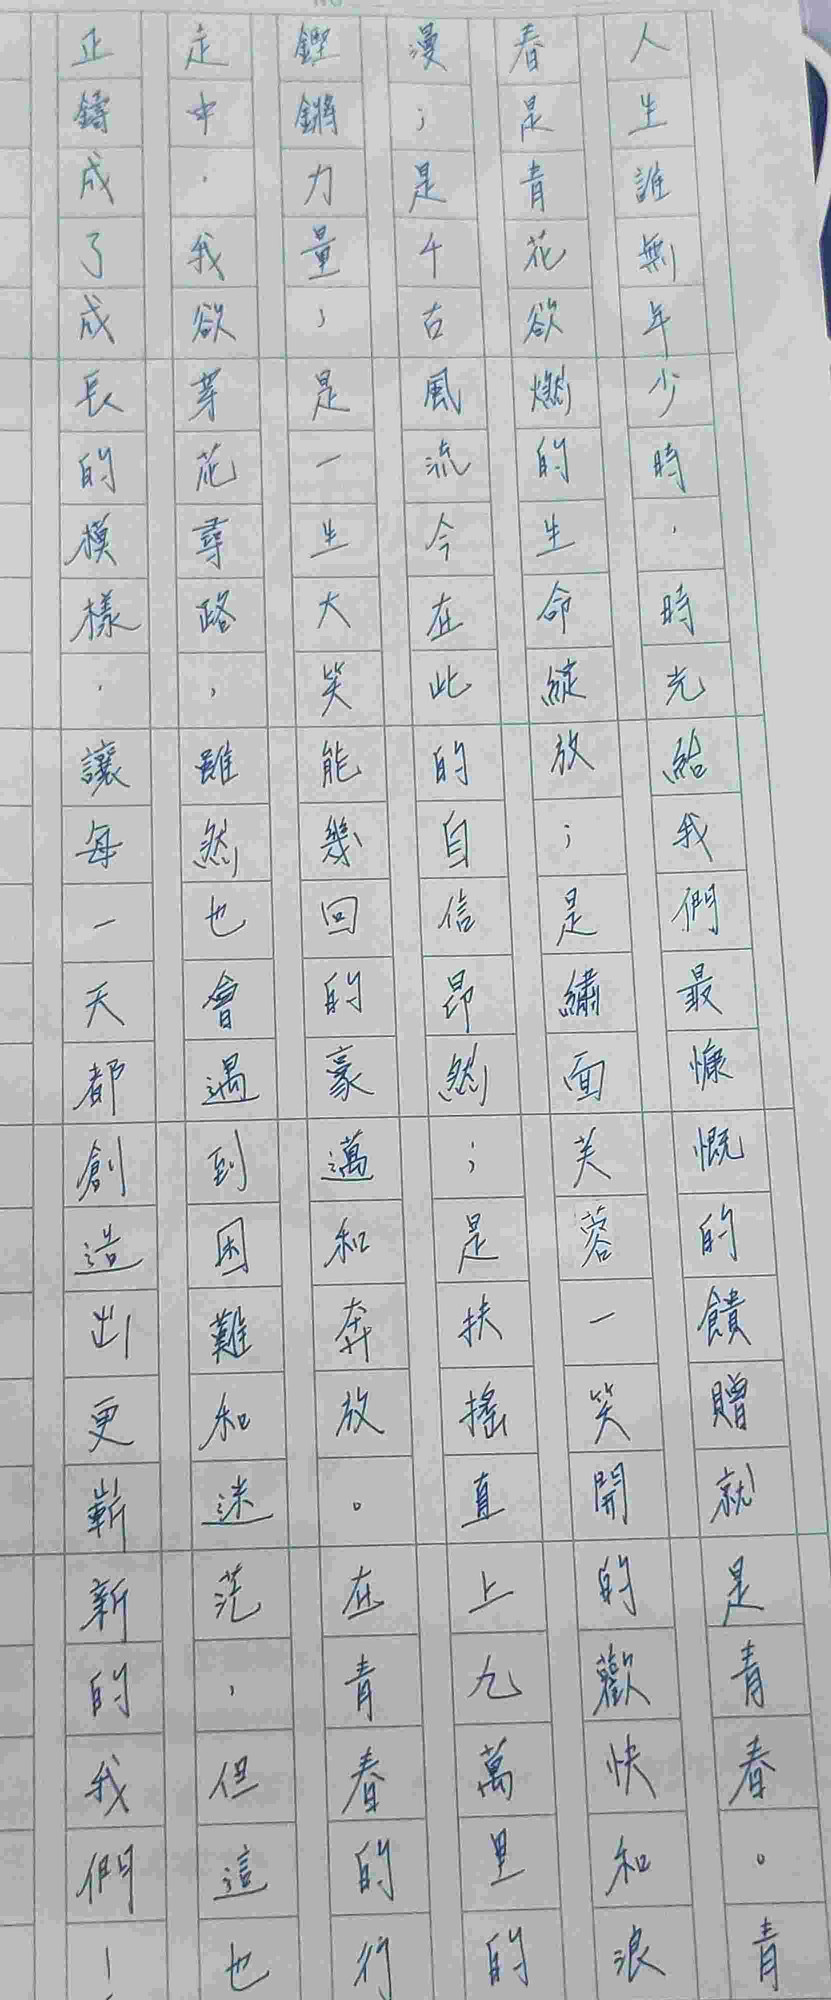 人生誰無年少時，時光給我們最慷慨的饋贈就是青春。青
春是青花欲燃的生命綻放；是繡面芙蓉一笑開的歡快和浪
漫；是千古風流今在此的自信昂然；是扶搖直上九萬里的
鏗鏘力量；是一生大笑能幾回的豪邁和奔放。在青春的行
走中，我欲穿花尋路，雖然也會遇到困難和迷茫，但這也
正鑄成了成長的模樣，讓每一天都創造出更嶄新的我們！